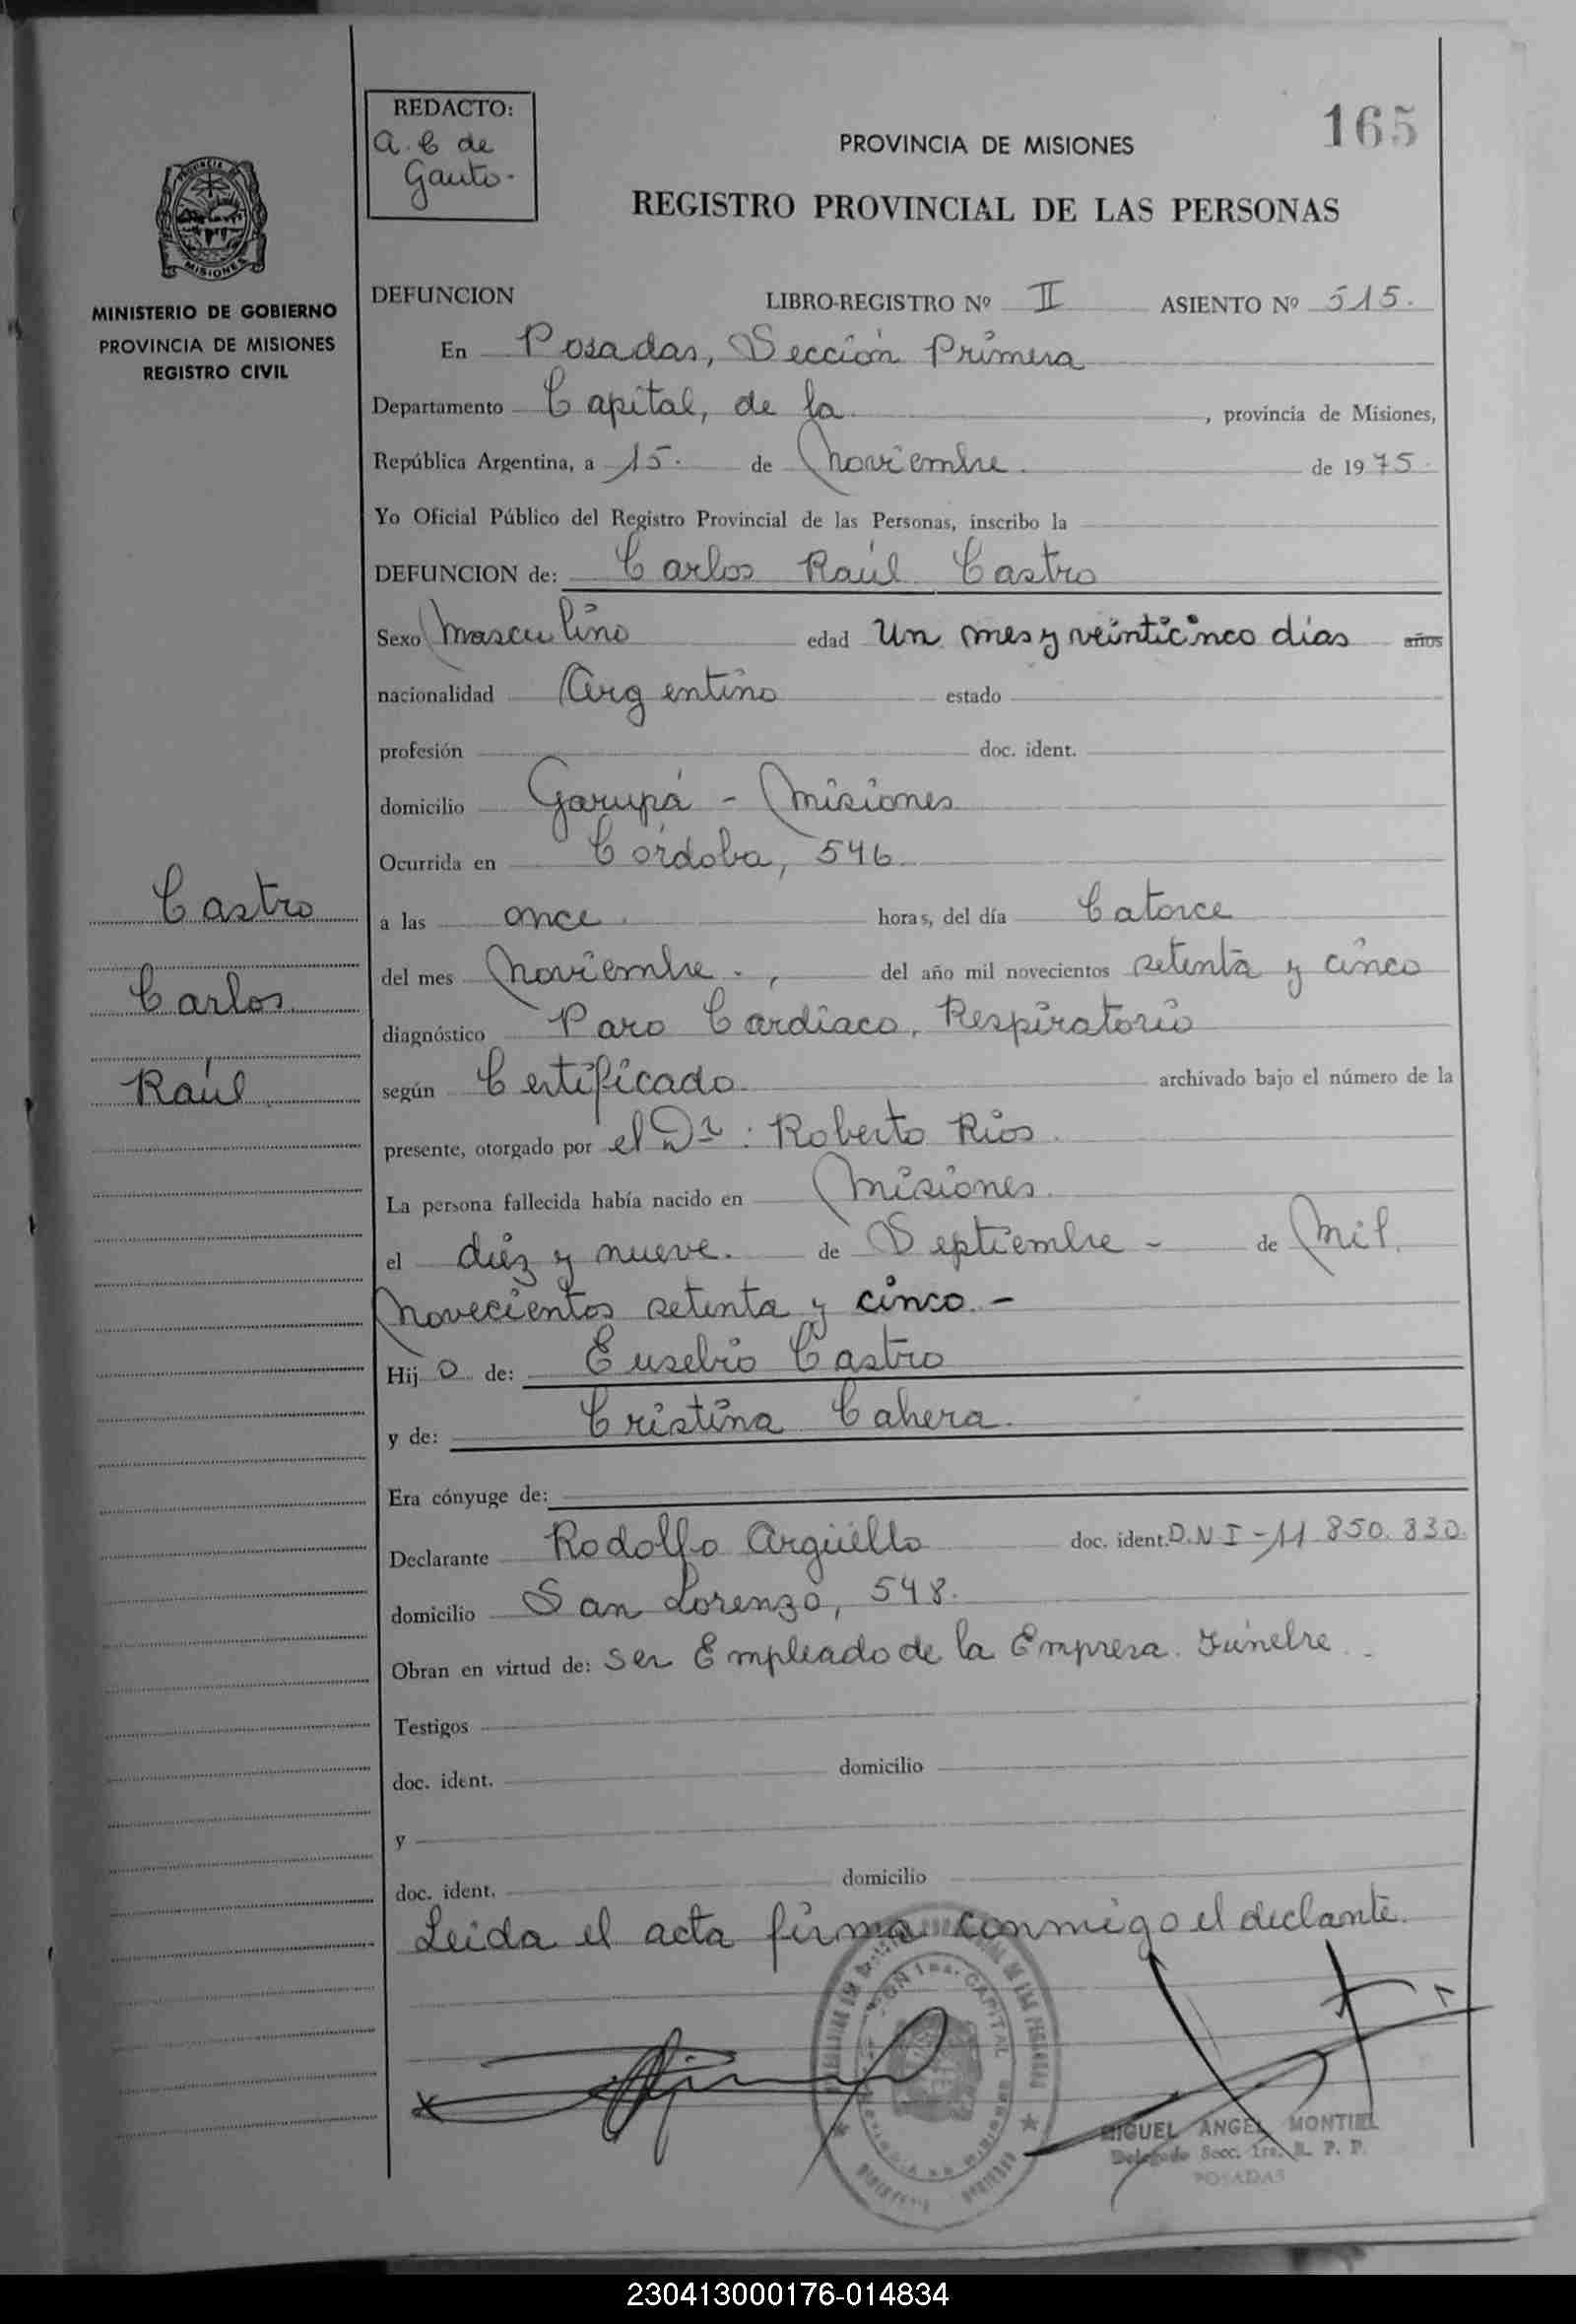 REDACTO:
A. C de
Gauto-
165
PROVINCIA DE MISIONES
REGISTRO PROVINCIAL DE LAS PERSONAS
MISIONES
MINISTERIO DE GOBIERNO
PROVINCIA DE MISIONES
REGISTRO CIVIL
DEFUNCION LIBRO-REGISTRO Nº II ASIENTO Nº 515.
En Posadas, Sección Primera
Departamento Capital, de la , provincia de Misiones,
República Argentina, a 15. de Noviembre. de 1975.
Yo Oficial Público del Registro Provincial de las Personas, inscribo la
DEFUNCION de: Carlos Raúl Castro
Sexo Masculino edad Un mes y veinticinco días años
nacionalidad Argentino estado
profesión doc. ident.
domicilio Garupá - Misiones
Ocurrida en Córdoba, 546.
Castro
a las once. horas, del día Catorce
del mes Noviembre. , del año mil novecientos setenta y cinco
Carlos
diagnóstico Paro Cardíaco, Respiratorio
Raúl.
según Certificado archivado bajo el número de la
presente, otorgado por el Dr: Roberto Rios.
La persona fallecida había nacido en Misiones.
el diez y nueve. de Septiembre - de Mil.
Novecientos setenta y cinco.-
Hijo de: Eusebio Castro
y de: Cristina Cahera.
Era cónyuge de:
Declarante Rodolfo Argüello doc. ident. D.N I - 11.850.330.
domicilio San Lorenzo, 548.
Obran en virtud de: Ser Empleado de la Empresa. Fúnebre.
Testigos
doc. ident. domicilio
y
doc. ident. domicilio
Leida el acta firma conmigo el declante.
MIGUEL ANGEL MONTIEL
Delegado Secc. 1ra. R. P. P.
POSADAS
230413000176-014834